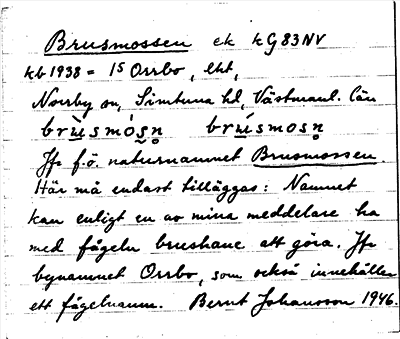 Brusmossen ek kG83NV
kb 1938 = 15 Orrbo, lht,
Norrby sn, Simtuna hd, Västmanl. län
brùsmósn brúsmosn
Jfr f.ö. naturnamnet Brusmossen.
Här må endast tilläggas: Namnet
kan enligt en av mina meddelare ha
med fågeln brushane att göra. Jfr
bynamnet Orrbo, som också innehåller
ett fågelnamn. Bernt Johansson 1946.